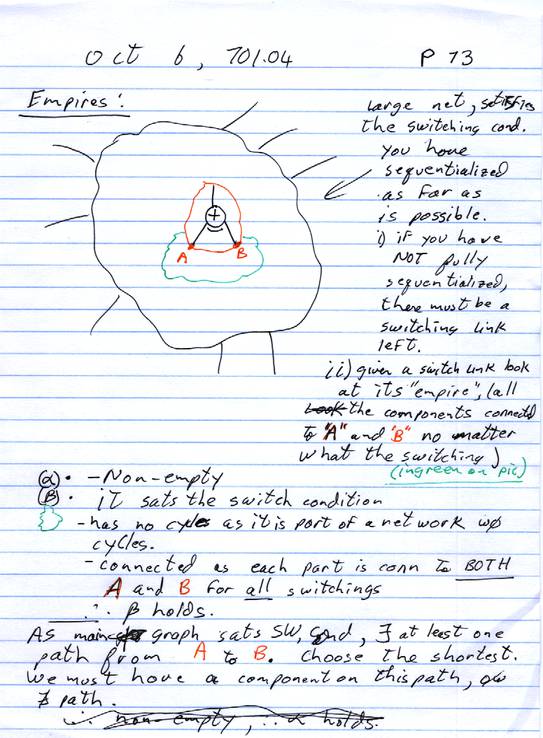 Oct 6, 701.04 P 73
Empires:
large net, satisfies
the switching cond.
You have
sequentialized
as far as
is possible.
i) if you have
NOT fully
sequentialized,
there must be a
switching link
left.
ii) given a switch link look
at its "empire", (all
Look the components connected
to "A" and "B" no matter
what the switching)
(in green on pic)
+
A B
α • - Non-empty
β • it sats the switch condition
- has no cycles as it is part of a network w/o
cycles.
- connected as each part is conn to BOTH
A and B for all switchings
∴ β holds.
As main graph sats SW, cond, ∃ at least one
path from A to B. Choose the shortest.
We must have a component on this path, o/w
∄ path.
∴ non-empty, ∴ α holds.